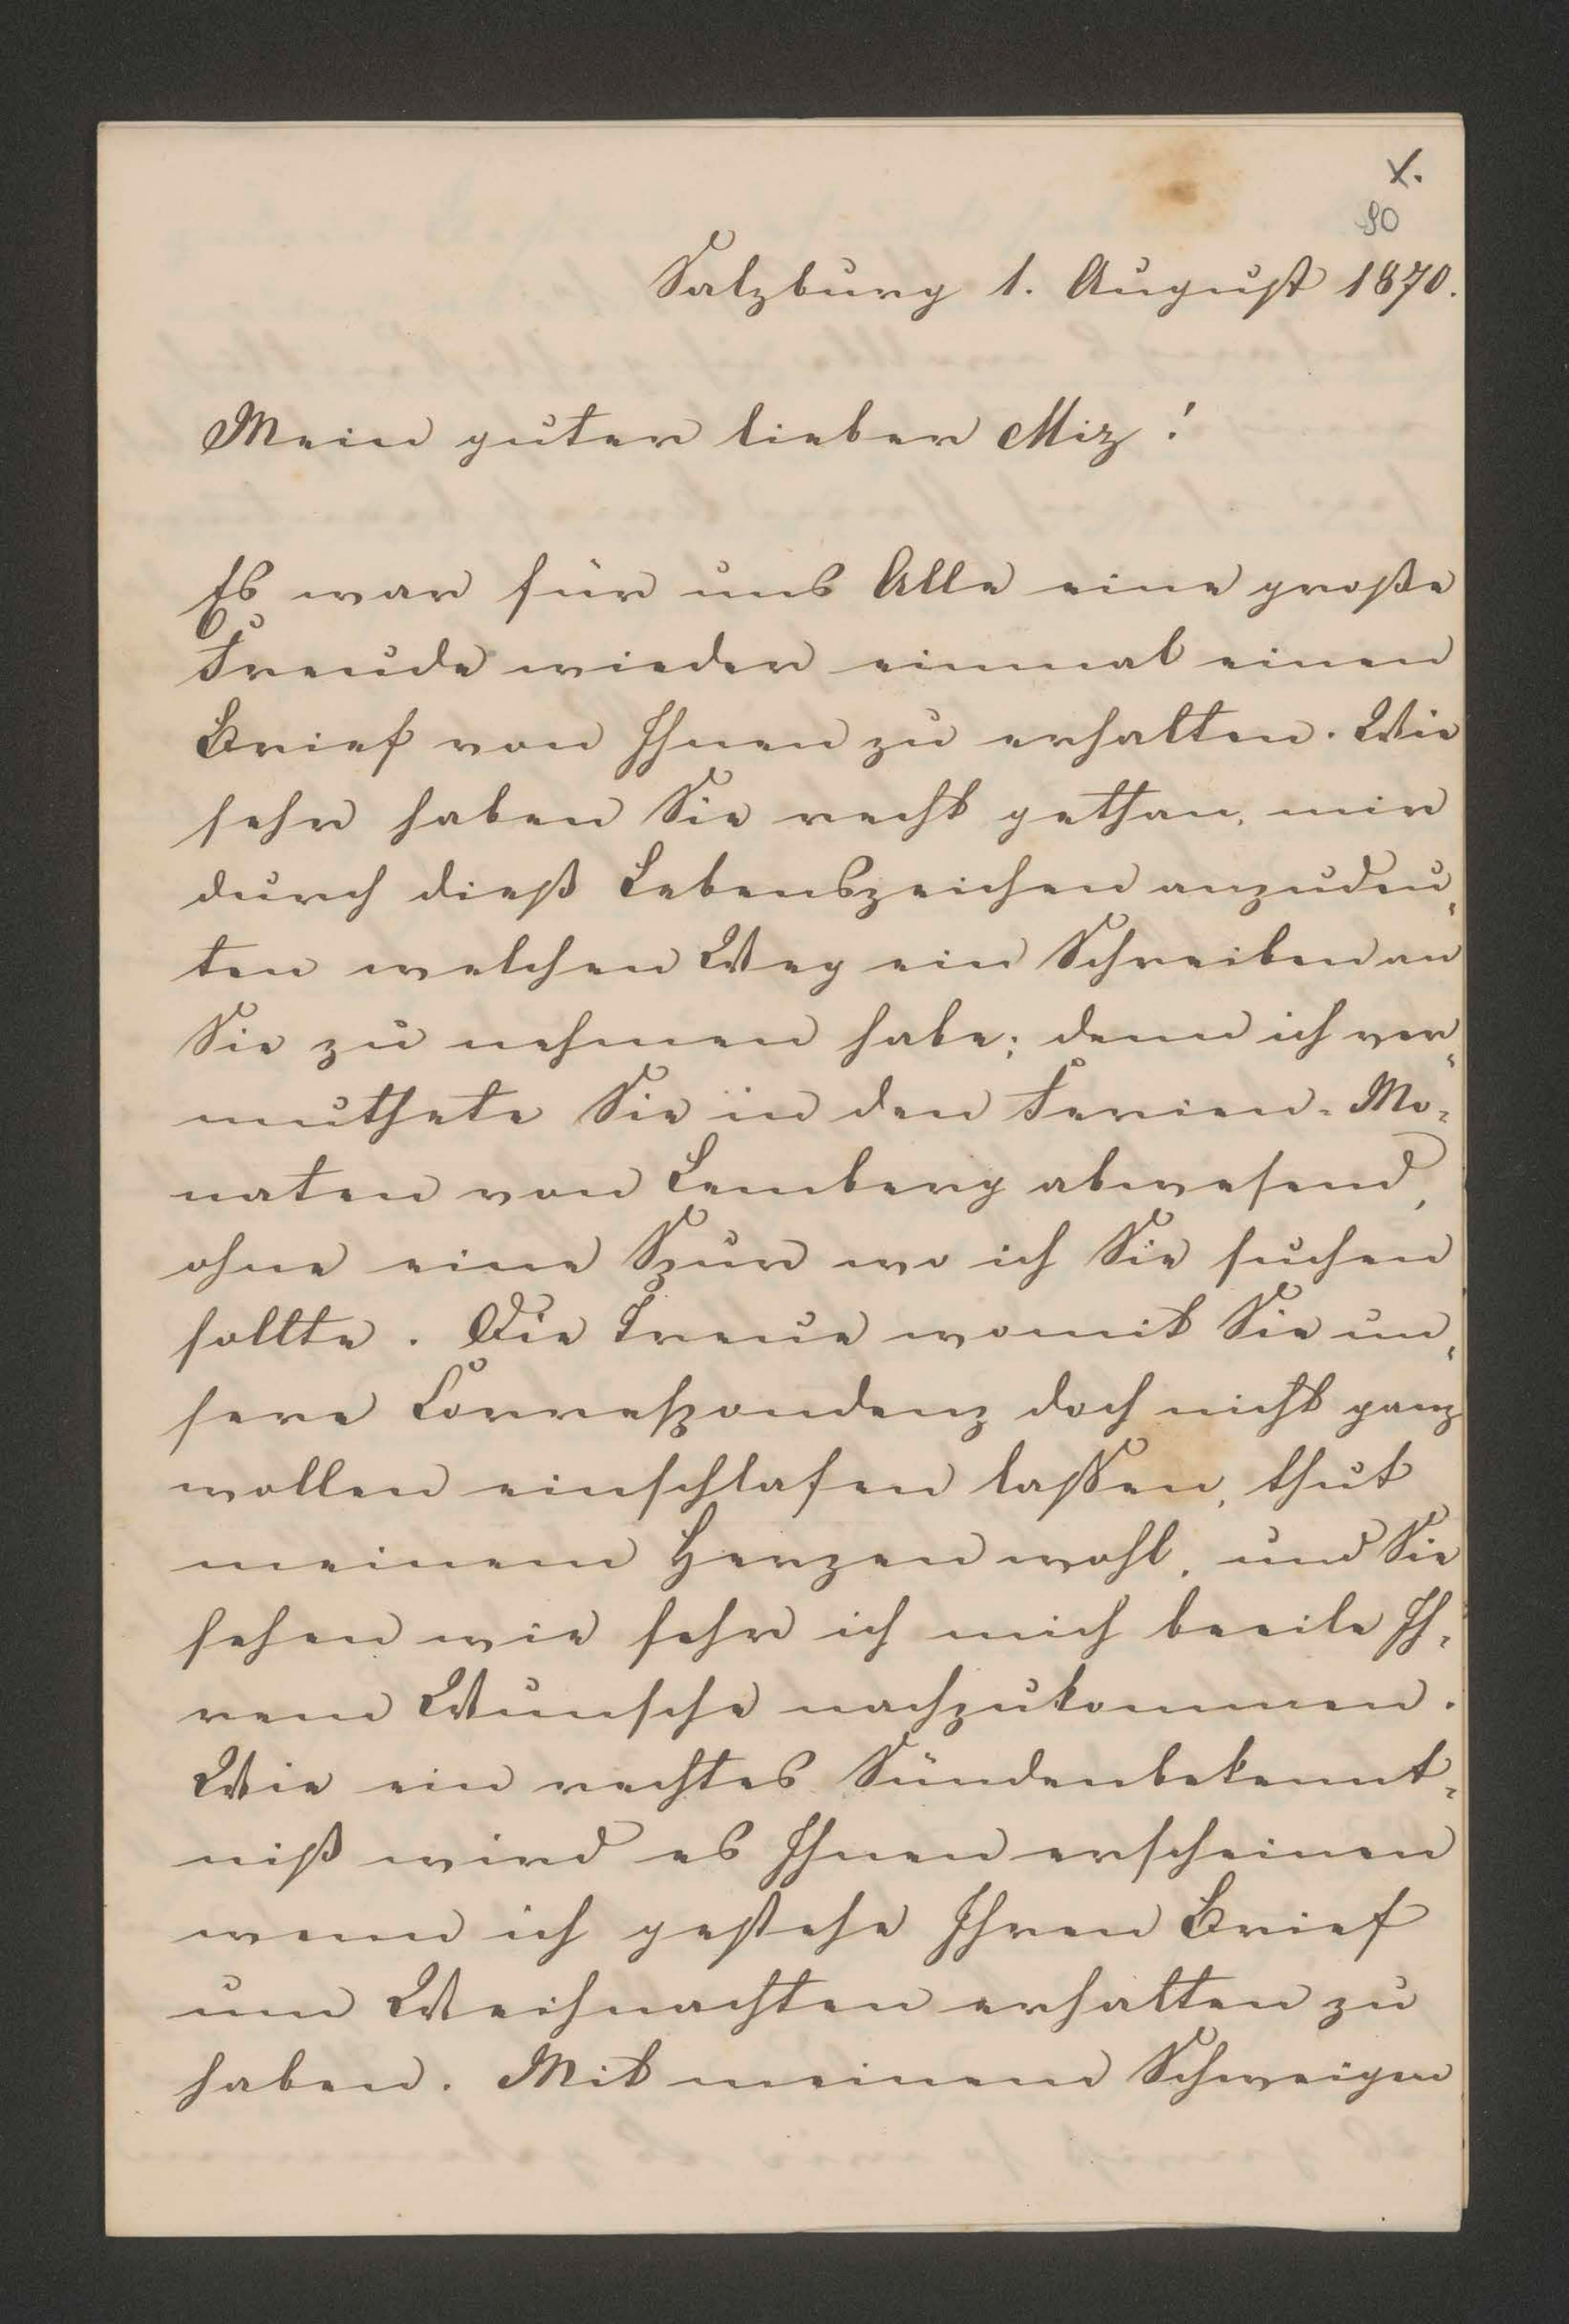 X.
90
Salzburg 1. August 1870.
Mein guter lieber Miz!
Es war für uns Alle eine große
Freude wieder einmal einen
Brief von Ihnen zu erhalten. Wie
sehr haben Sie recht gethan, mir
durch dieß Lebenszeichen anzudeu„
ten welchen Weg ein Schreiben an
Sie zu nehmen habe; denn ich ver„
muthete Sie in den Ferien-Mo„
naten von Lemberg abwesend,
ohne eine Spur wo ich Sie suchen
sollte. Die Treue womit Sie un„
sere Correspondenz doch nicht ganz
wollen einschlafen lassen, thut
meinem Herzen wohl, und Sie
sehen wie sehr ich mich beeile Ih„
rem Wunsche nachzukommen.
Wie ein rechtes Sündenbekennt„
niß wird es Ihnen erscheinen
wenn ich gestehe Ihren Brief
um Weihnachten erhalten zu
haben. Mit meinem Schweigen